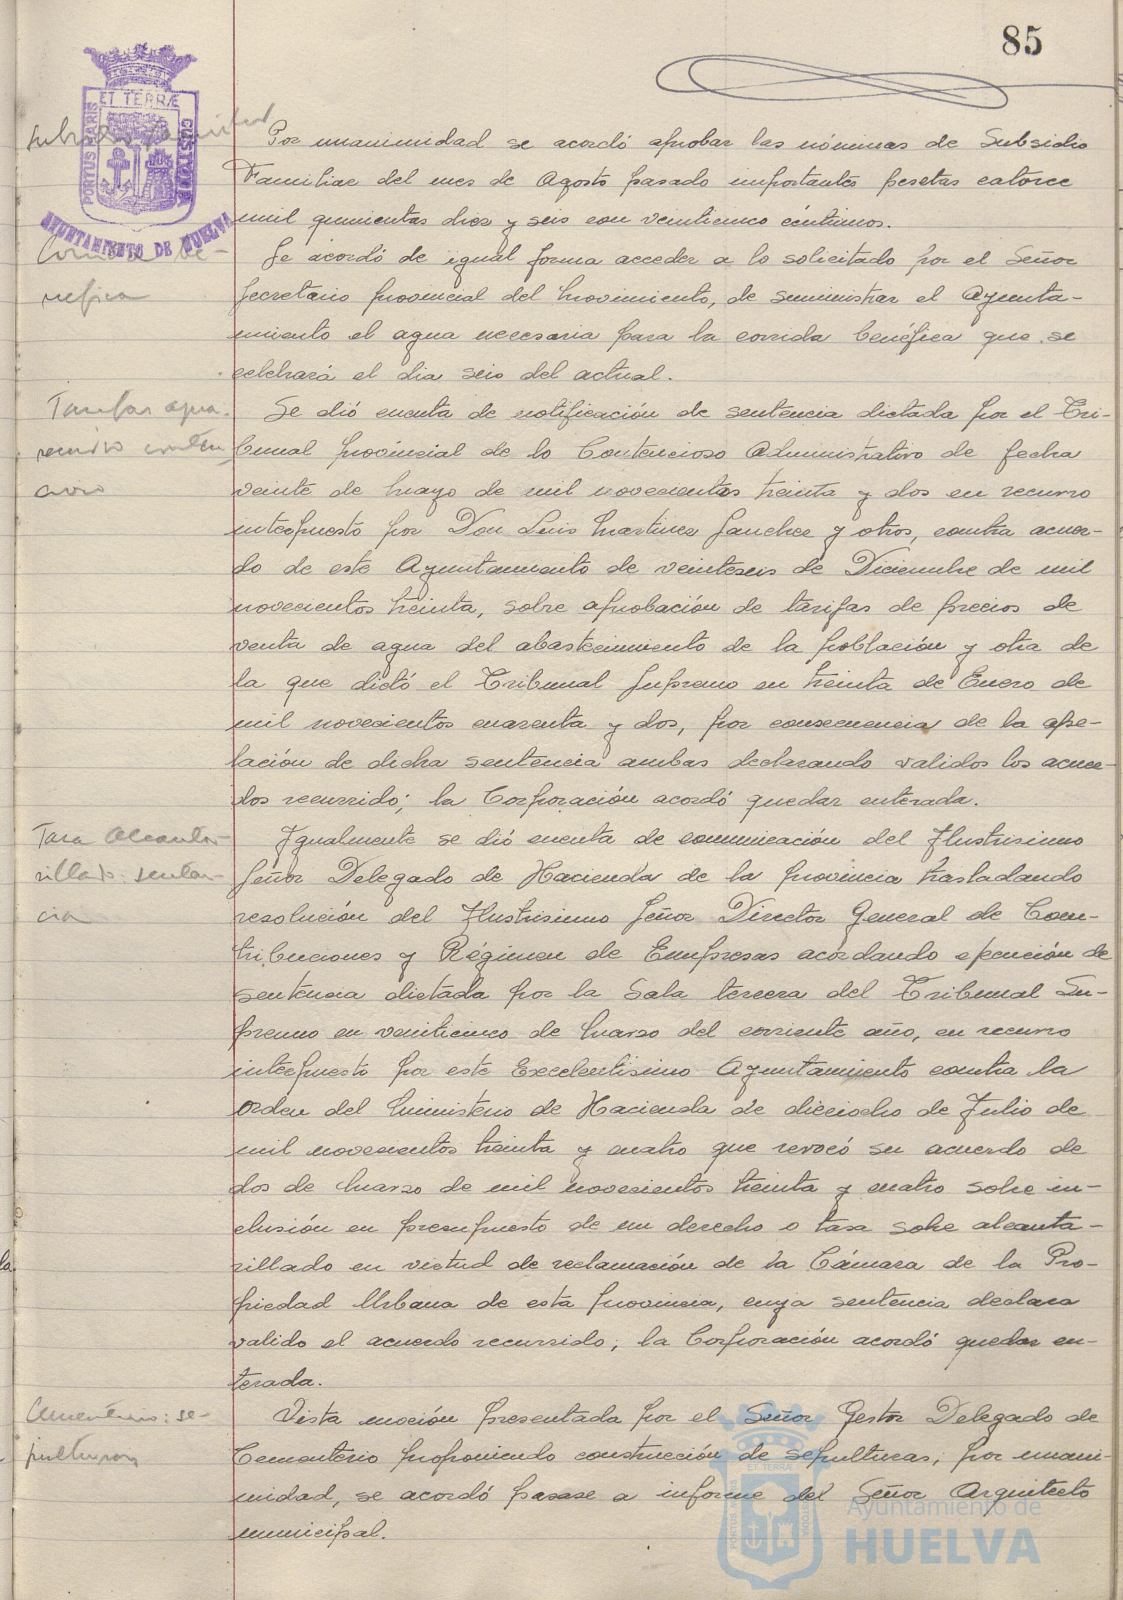 85
ET TERRÆ
PORTUS MARIS
CUSTODIA
AYUNTAMIENTO DE HUELVA
Por unanimidad se acordó aprobar las nóminas de Subsidio
Familiar del mes de Agosto pasado importantes pesetas catorce
mil quinientas diez y seis con veinticinco céntimos.
Corrida be-
néfica
Se acordó de igual forma acceder a lo solicitado por el Señor
Secretario provincial del Movimiento, de suministrar el Ayunta-
miento el agua necesaria para la corrida benéfica que se
celebrará el dia seis del actual.
Tarifas agua.
recurso conten
cioso
Se dió cuenta de notificación de sentencia dictada por el Tri-
bunal provincial de lo Contencioso Administrativo de fecha
veinte de Mayo de mil novecientos treinta y dos en recurso
interpuesto por Don Luis Martinez Sanchez y otros, contra acuer-
do de este Ayuntamiento de veinteseis de Diciembre de mil
novecientos treinta, sobre aprobación de tarifas de precios de
venta de agua del abastecimiento de la población y otra de
la que dictó el Tribunal Supremo en treinta de Enero de
mil novecientos cuarenta y dos, por consecuencia de la ape-
lación de dicha sentencia ambas declarando validos los acuer-
dos recurrido; la Corporación acordó quedar enterada.
Tasa Alcanta-
rillado: senten-
cia
Igualmente se dió cuenta de comunicación del Ilustrisimo
Señor Delegado de Hacienda de la provincia trasladando
resolución del Ilustrisimo Señor Director General de Con-
tribuciones y Régimen de Empresas acordando ejecución de
sentencia dictada por la Sala tercera del Tribunal Su-
premo en veinticinco de Marzo del corriente año, en recurso
interpuesto por este Excelentisimo Ayuntamiento contra la
Orden del Ministerio de Hacienda de dieciocho de Julio de
mil novecientos treinta y cuatro que revocó su acuerdo de
dos de Marzo de mil novecientos treinta y cuatro sobre in-
clusión en presupuesto de un derecho o tasa sobre alcanta-
rillado en virtud de reclamación de la Cámara de la Pro-
piedad Urbana de esta provincia, cuya sentencia declara
valido el acuerdo recurrido; la Corporación acordó quedar en-
terada.
Cementerio: se-
pulturas
Vista moción presentada por el Señor Gestor Delegado de
Cementerio proponiendo construcción de sepulturas; por unani-
midad, se acordó pasase a informe del Señor Arquitecto
municipal.
la
Ayuntamiento de
HUELVA